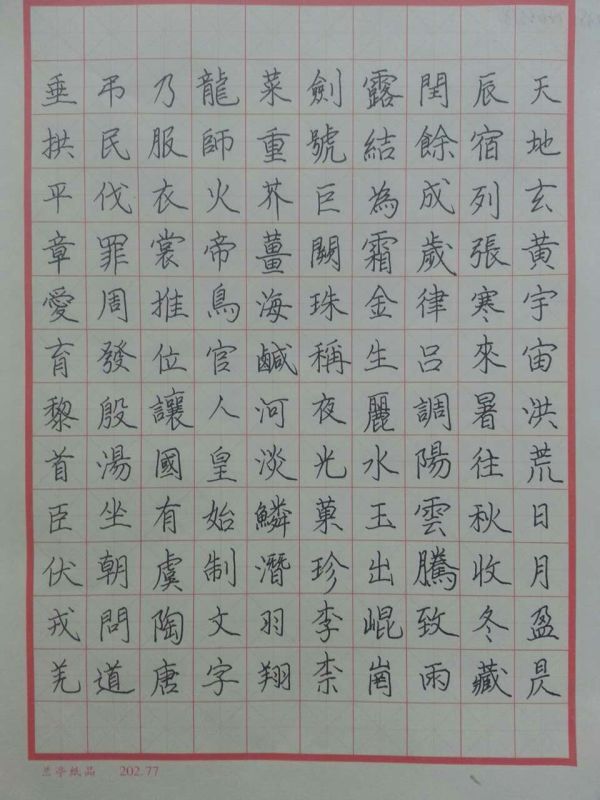 天地玄黃宇宙洪荒日月盈昃
辰宿列張寒來暑往秋收冬藏
閏餘成歲律呂調陽雲騰致雨
露結為霜金生麗水玉出崐崗
劍號巨闕珠稱夜光菓珍李柰
菜重芥薑海鹹河淡鱗潛羽翔
龍師火帝鳥官人皇始制文字
乃服衣裳推位讓國有虞陶唐
弔民伐罪周發殷湯坐朝問道
垂拱平章愛育黎首臣伏戎羌
兰亭纸品 202.77